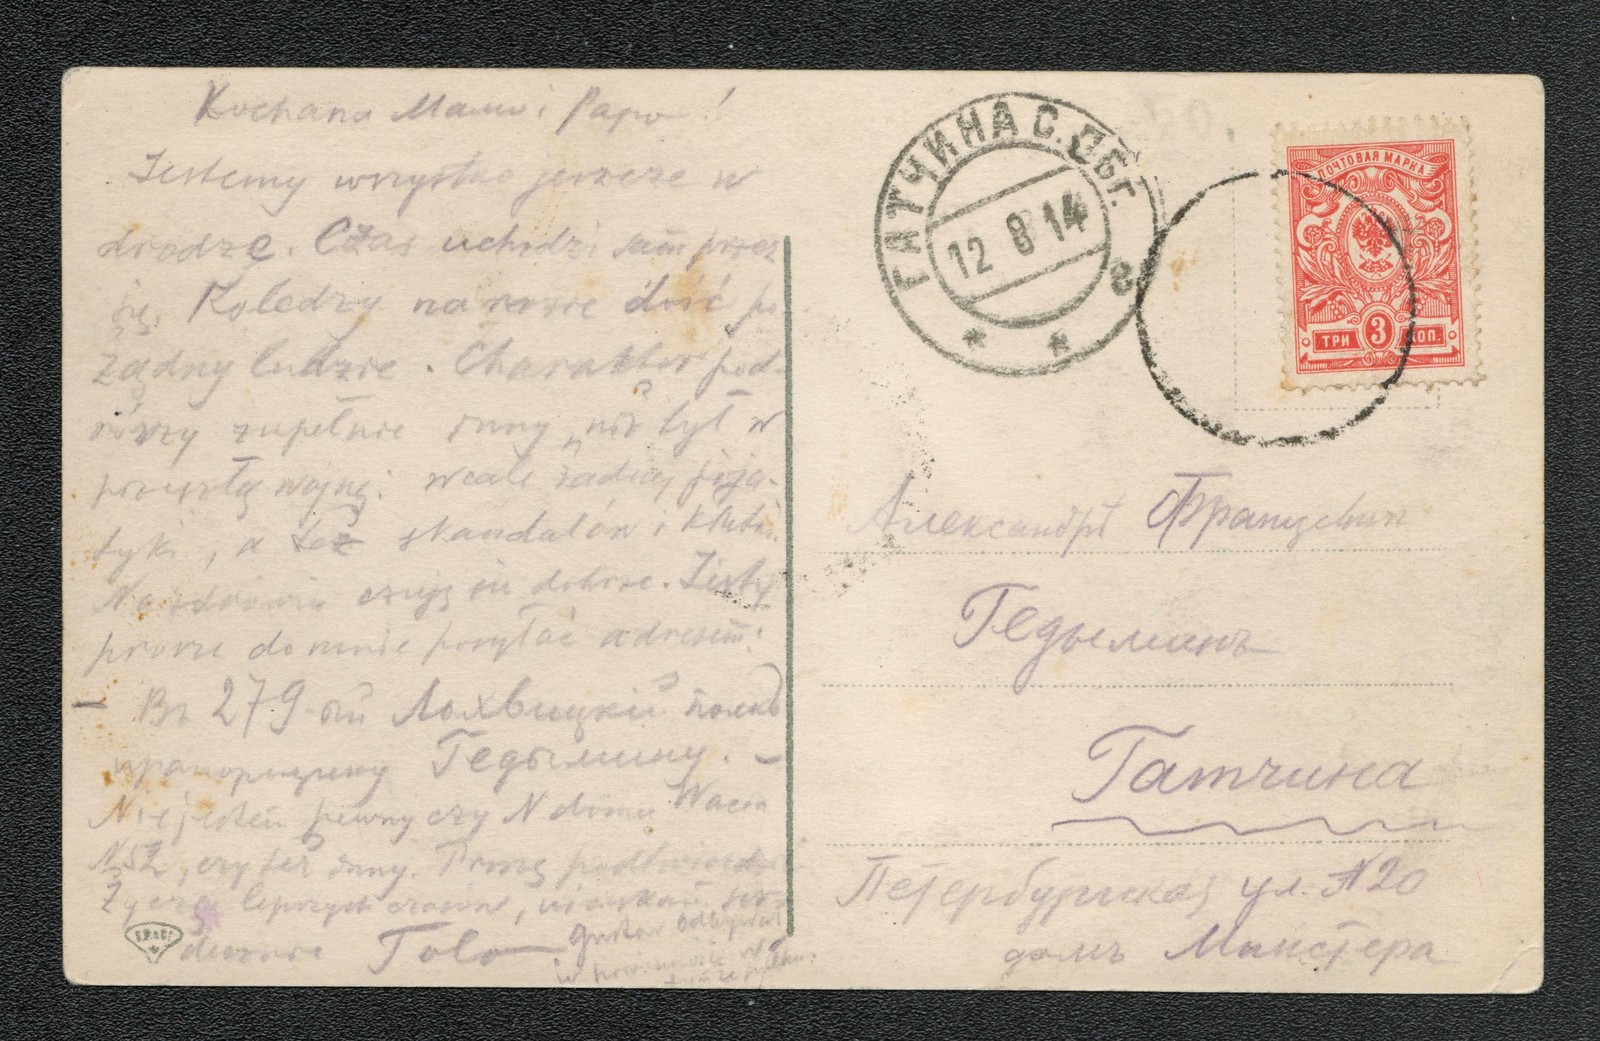 Kochana Mamo i Papo!
Jesteśmy wszystko jeszcze w
drodze. Czas uchodzi sam przez
się. Koledzy na razie dość po
żądny ludzie. Charakter pod-
róży zupełnie inny niż był w
przeszłą wojnę. Wcale żadnej pija-
tyki, a też skandalów i
Na zdrowiu czuję się dobrze. Listy
proszę do mnie posyłać adresem:
– Въ 279-ой Лохвицкій полкъ
прапорщику Гедымину. –
Nie jestem pewny czy N domu Wacia
N 52, czy też inny. Proszę
Życzę lepszych czasów, ser-
decznie Tolo
Gustaw
w
ГАТЧИНА С.Пбг.
12 8 14
ПОЧТОВАЯ МАРКА
ТРИ 3 КОП.
Александръ Францевичъ
Гедыминъ
Гатчина
Петербургская ул. N 20
домъ Министера